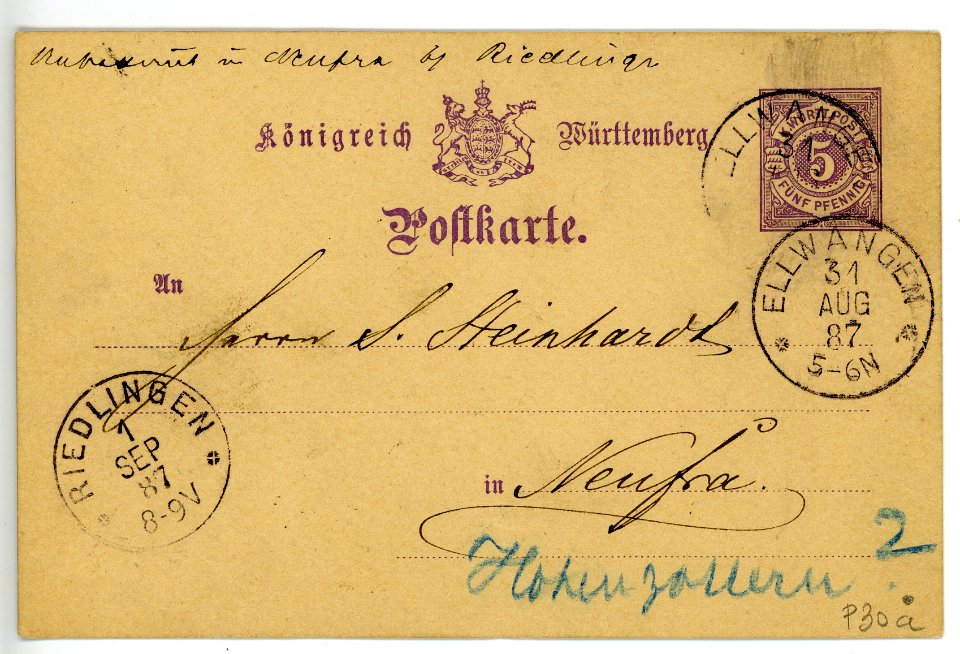 Unbekannt in Neufra by Riedlingr
Königreich Württemberg
K. WÜRTT. POST
5
FÜNF PFENNIG
ELLWANGEN
Postkarte.
ELLWANGEN
31
AUG
87
5-6N
An
Herrn S. Steinhardt
RIEDLINGEN
1
SEP
87
8-9V
in Neufra.
Hohenzollern ?
2
P30a